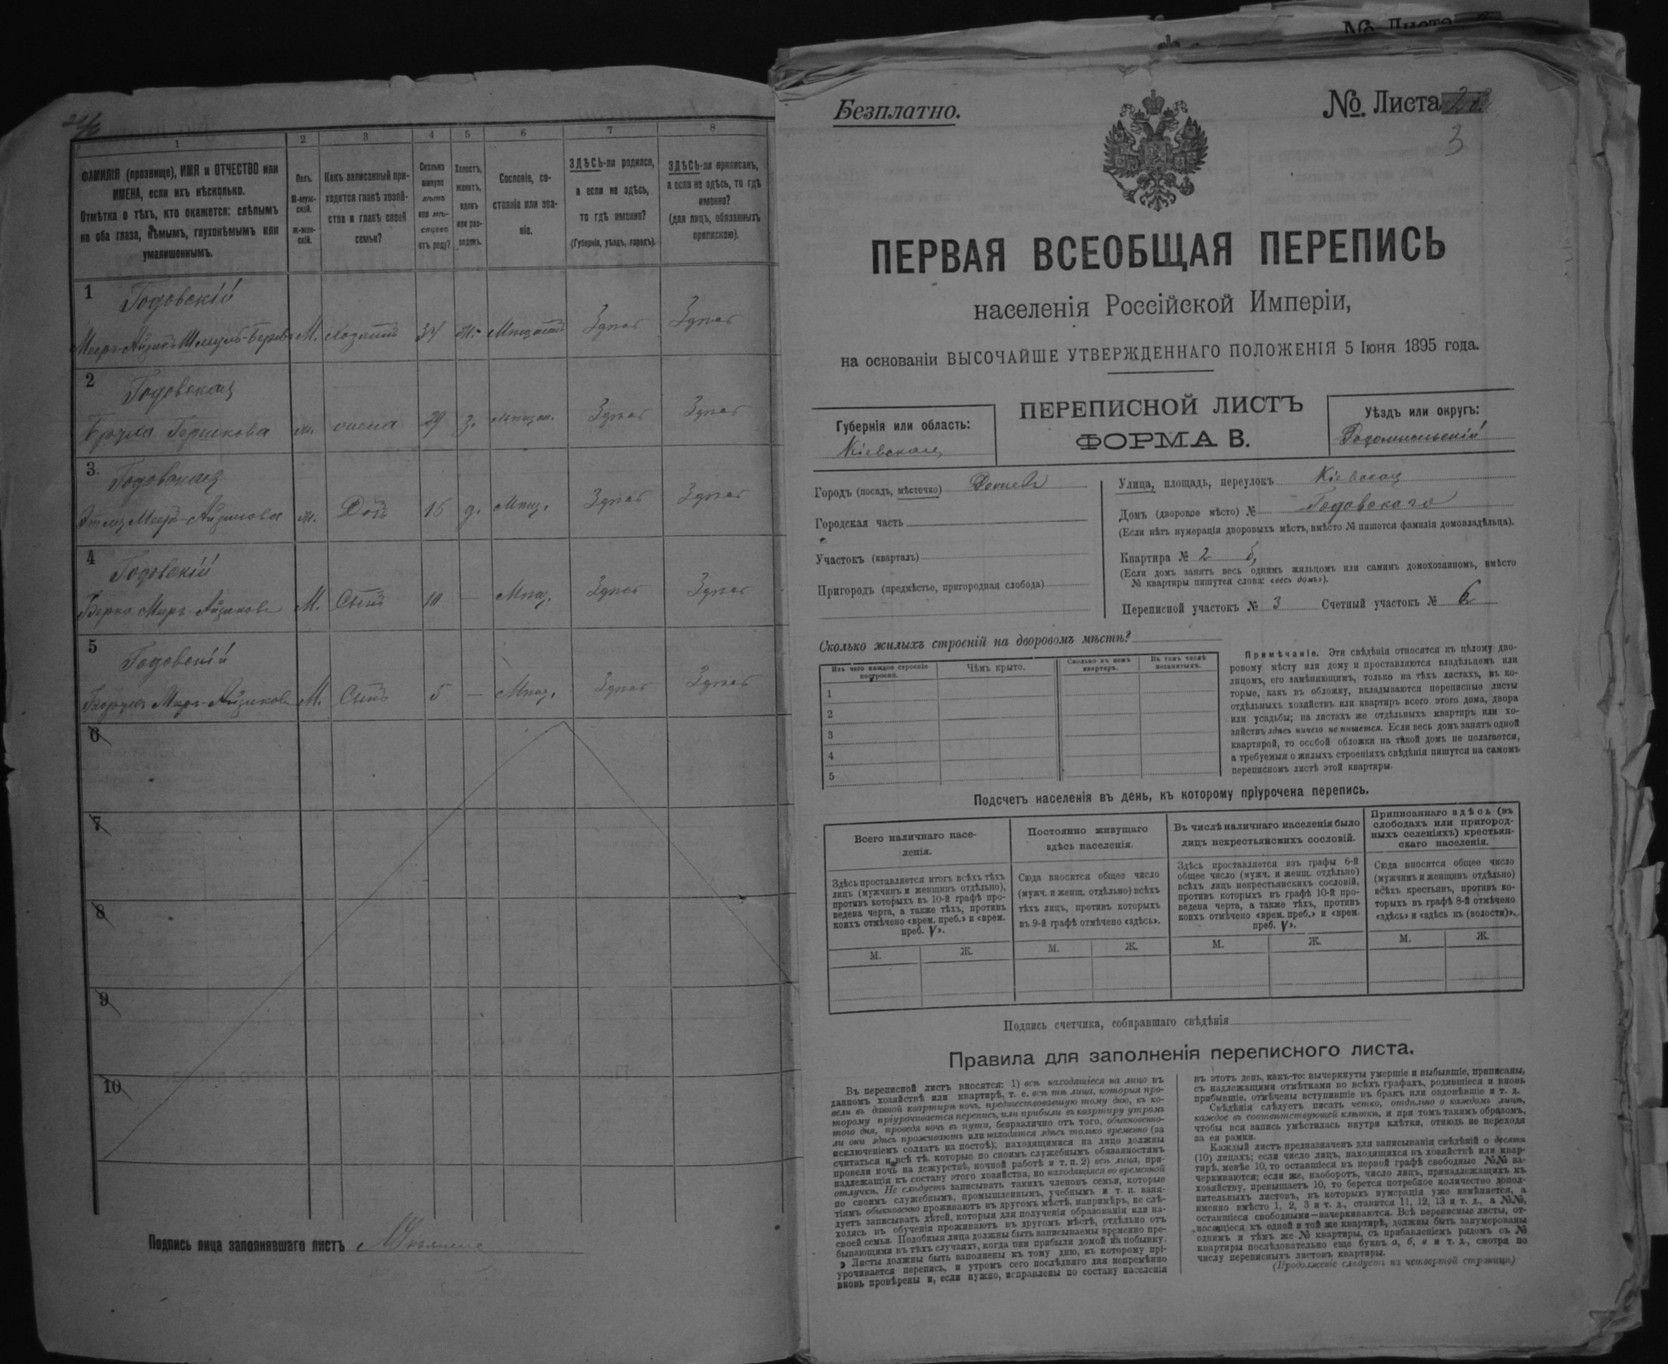 1
2
3
4
5
6
7
8
ФАМИЛІЯ (прозвище), ИМЯ и ОТЧЕСТВО или
ИМЕНА, если ихъ нѣсколько.
Отмѣтка о тѣхъ, кто окажется: слѣпымъ
на оба глаза, нѣмымъ, глухонѣмымъ или
умалишеннымъ.
Полъ.
М-муж-
ской.
Ж-жен-
скій.
Какъ записанный при-
ходится главѣ хозяй-
ства и главѣ своей
семьи?
Сколько
минуло
лѣтъ
или мѣ-
сяцевъ
отъ роду?
Холостъ,
женатъ,
вдовъ
или раз-
веденъ.
Сословіе, со-
стояніе или зва-
ніе.
ЗДѢСЬ-ли родился,
а если не здѣсь,
то гдѣ именно?
(Губернія, уѣздъ, городъ).
ЗДѢСЬ-ли приписанъ,
а если не здѣсь, то гдѣ
именно?
(для лицъ, обязанныхъ
припискою).
1
Годовскій
Меръ-Айзикъ Шмуль-Берк М. хозяинъ 34 ж. Мѣщанинъ Здѣсь Здѣсь
2
Годовская
Бруха Гершкова ж. жена 29 з. мѣщан. Здѣсь Здѣсь
3
Годовская
Меръ-Айзикова ж. Дочь 15 д. Мѣщ. Здѣсь Здѣсь
4
Годовскій
Берко Меръ-Айзиковъ М. Сынъ 10 — Мѣщ. Здѣсь Здѣсь
5
Годовскій
Меръ-Айзиковъ М. Сынъ 5 — Мѣщ. Здѣсь Здѣсь
6
7
8
9
10
Подпись лица заполнявшаго листъ
Безплатно.
№ Листа
3
ПЕРВАЯ ВСЕОБЩАЯ ПЕРЕПИСЬ
населенія Россійской Имперіи,
на основаніи ВЫСОЧАЙШЕ УТВЕРЖДЕННАГО ПОЛОЖЕНІЯ 5 Іюня 1895 года.
Губернія или область:
Кіевская
ПЕРЕПИСНОЙ ЛИСТЪ
ФОРМА В.
Уѣздъ или округъ:
Радомысльскій
Городъ (посадъ, мѣстечко)
Городская часть
Участокъ (кварталъ)
Пригородъ (предмѣстье, пригородная слобода)
Улица, площадь, переулокъ Кіевская
Домъ (дворовое мѣсто) № Годовскаго
(Если нѣтъ нумераціи дворовыхъ мѣстъ, вмѣсто № пишется фамилія домовладѣльца).
Квартира № 2 б,
(Если домъ занятъ весь однимъ жильцомъ или самимъ домохозяиномъ, вмѣсто
№ квартиры пишутся слова: «весь домъ»).
Переписной участокъ № 3 Счетный участокъ № 6
Сколько жилыхъ строеній на дворовомъ мѣстѣ?
Изъ чего каждое строеніе
построено.
Чѣмъ крыто.
Сколько въ немъ
квартиръ.
Въ томъ числѣ
незанятыхъ.
1
2
3
4
5
Примѣчаніе. Эти свѣдѣнія относятся къ цѣлому дво-
ровому мѣсту или дому и проставляются владѣльцемъ или
лицомъ, его замѣняющимъ, только на тѣхъ листахъ, въ ко-
торые, какъ въ обложку, вкладываются переписные листы
отдѣльныхъ хозяйствъ или квартиръ всего этого дома, двора
или усадьбы; на листахъ же отдѣльныхъ квартиръ или хо-
зяйствъ здѣсь ничего не пишется. Если весь домъ занятъ одной
квартирой, то особой обложки на такой домъ не полагается,
а требуемыя о жилыхъ строеніяхъ свѣдѣнія пишутся на самомъ
переписномъ листѣ этой квартиры.
Подсчетъ населенія въ день, къ которому пріурочена перепись.
Всего наличнаго насе-
ленія.
Здѣсь проставляется итогъ всѣхъ тѣхъ
лицъ (мужчинъ и женщинъ отдѣльно),
противъ которыхъ въ 10-й графѣ про-
ведена черта, а также тѣхъ, противъ
коихъ отмѣчено «врем. преб.» и «врем.
преб. V».
М.
Ж.
Постоянно живущаго
здѣсь населенія.
Сюда вносится общее число
(мужч. и женщ. отдѣльно) всѣхъ
тѣхъ лицъ, противъ которыхъ
въ 9-й графѣ отмѣчено «здѣсь».
М.
Ж.
Въ числѣ наличнаго населенія было
лицъ некрестьянскихъ сословій.
Здѣсь проставляется изъ графы 6-й
общее число (мужч. и женщ. отдѣльно)
всѣхъ лицъ некрестьянскихъ сословій,
противъ которыхъ въ графѣ 10-й про-
ведена черта, а также тѣхъ, противъ
коихъ отмѣчено «врем. преб.» и «врем.
преб. V».
М.
Ж.
Приписаннаго здѣсь (въ
слободахъ или пригород-
ныхъ селеніяхъ) крестьян-
скаго населенія.
Сюда вносится общее число
(мужчинъ и женщинъ отдѣльно)
всѣхъ крестьянъ, противъ ко-
торыхъ въ графѣ 8-й отмѣчено
«здѣсь» и «здѣсь къ (волости)».
М.
Ж.
Подпись счетчика, собиравшаго свѣдѣнія
Правила для заполненія переписного листа.
Въ переписной листъ вносятся: 1) всѣ находящіеся на лицо въ
данномъ хозяйствѣ или квартирѣ, т. е. всѣ тѣ лица, которыя про-
вели въ данной квартирѣ ночь, предшествовавшую тому дню, къ ко-
торому пріурочивается перепись, или прибыли въ квартиру утромъ
того дня, проведя ночь въ пути, безразлично отъ того, обыкновенно-
ли они здѣсь проживаютъ или находятся здѣсь только временно (за
исключеніемъ солдатъ на постоѣ); находящимися на лицо должны
считаться и всѣ тѣ, которые по своимъ служебнымъ обязанностямъ
провели ночь на дежурствѣ, ночной работѣ и т. п. 2) всѣ лица, при-
надлежащія къ составу этого хозяйства, но находящіяся во временной
отлучкѣ. Не слѣдуетъ записывать такихъ членовъ семьи, которые
по своимъ служебнымъ, промышленнымъ, учебнымъ и т. п. заня-
тіямъ обыкновенно проживаютъ въ другомъ мѣстѣ, напримѣръ, не слѣ-
дуетъ записывать дѣтей, которыя для полученія образованія или на-
ходясь въ обученіи проживаютъ въ другомъ мѣстѣ, отдѣльно отъ
своей семьи. Подобныя лица должны быть записываемы временно пре-
бывающими въ тѣхъ случаяхъ, когда они прибыли домой на побывку.
Листы должны быть заполнены къ тому дню, къ которому прі-
урочивается перепись, и утромъ сего послѣдняго дня непремѣнно
вновь провѣрены и, если нужно, исправлены по составу населенія
въ этотъ день, какъ-то: вычеркнуты умершіе и выбывшіе, приписаны,
съ надлежащими отмѣтками во всѣхъ графахъ, родившіеся и вновь
прибывшіе, отмѣчены вступившіе въ бракъ или овдовѣвшіе и т. д.
Свѣдѣнія слѣдуетъ писать четко, отдѣльно о каждомъ лицѣ,
каждое въ соотвѣтствующей клѣткѣ, и при томъ такимъ образомъ,
чтобы вся запись умѣстилась внутри клѣтки, отнюдь не переходя
за ея рамки.
Каждый листъ предназначенъ для записыванія свѣдѣній о десяти
(10) лицахъ; если число лицъ, находящихся въ хозяйствѣ или квар-
тирѣ, менѣе 10, то оставшіеся въ первой графѣ свободные №№ за-
черкиваются; если же, наоборотъ, число лицъ, принадлежащихъ къ
хозяйству, превышаетъ 10, то берется потребное количество допол-
нительныхъ листовъ, въ которыхъ нумерація уже измѣняется, а
именно вмѣсто 1, 2, 3 и т. д., ставится 11, 12, 13 и т. д., а №№,
оставшіеся свободными—зачеркиваются. Всѣ переписные листы, от-
носящіеся къ одной и той же квартирѣ, должны быть занумерованы
однимъ и тѣмъ же № квартиры, съ прибавленіемъ рядомъ съ №
квартиры послѣдовательно еще буквъ а, б, в и т. д., смотря по
числу переписныхъ листовъ квартиры.
(Продолженіе слѣдуетъ на четвертой страницѣ)